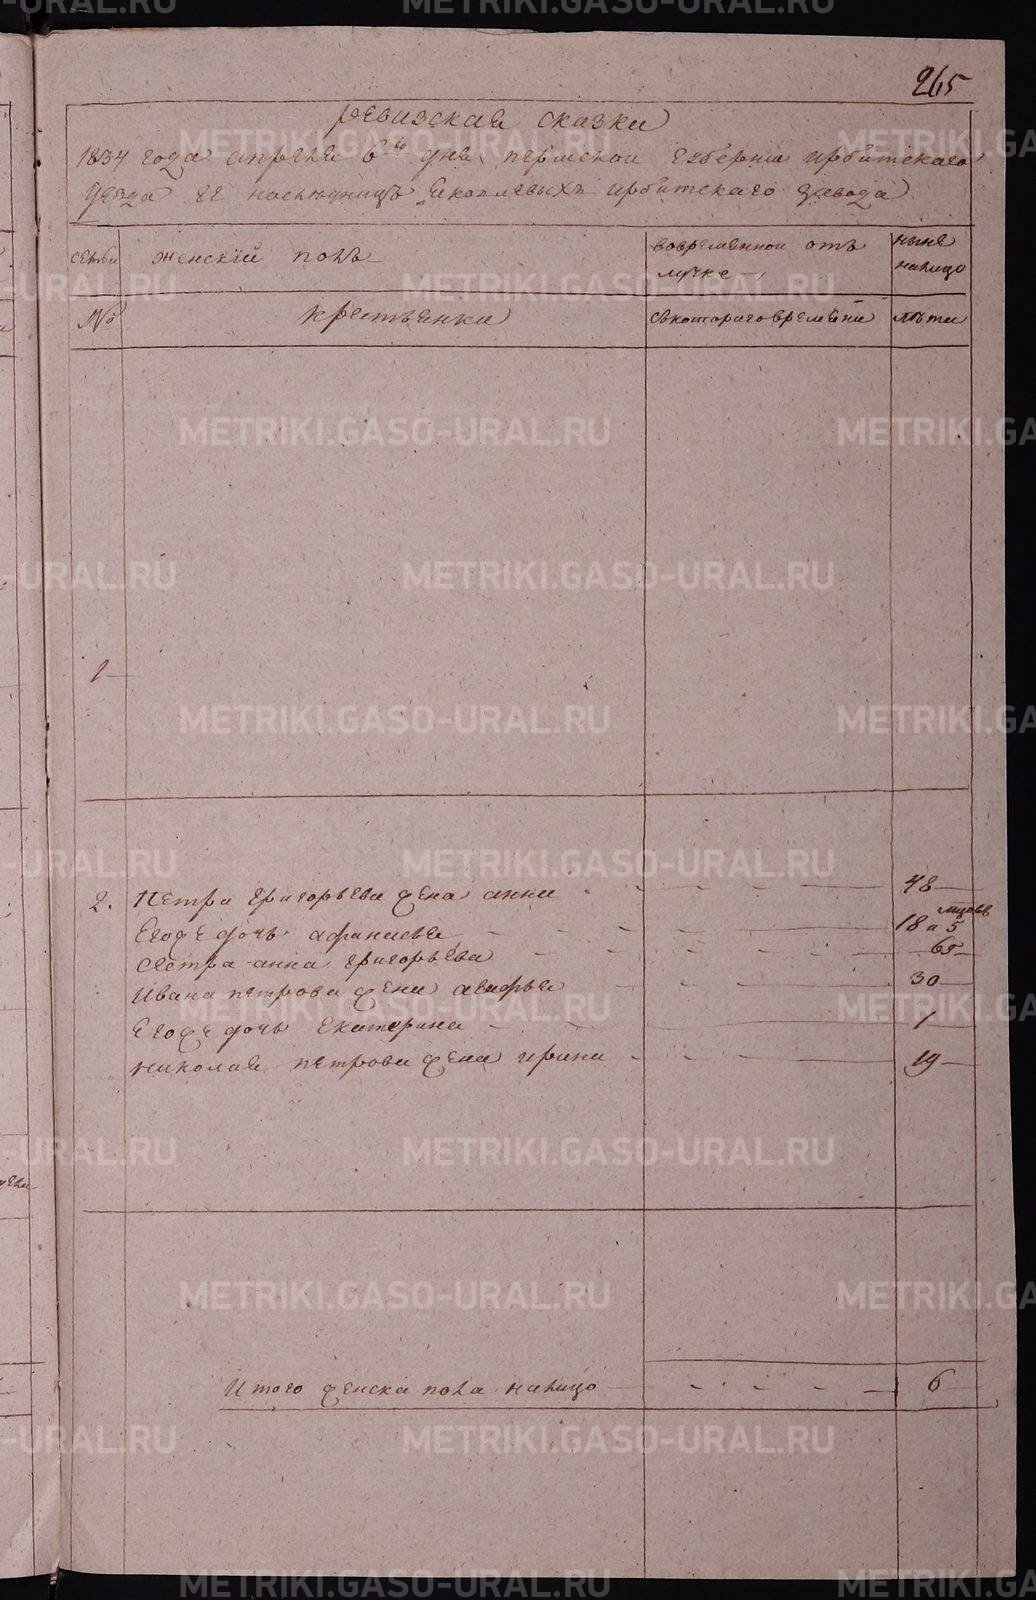 265
ревизская сказка
1834 года апреля 6го дня пермской губернии ирбитскаго
уезда гг наследницъ яковлевыхъ ирбитскаго завода
семьи
женскiй полъ
вовременной отъ
лучке
ныне
налицо
№
крестьянка
съкотораго времени
лъты
1
2. Петра григорьева жена анна 48
Егожъ дочь афанасья 18 и 5 мцовъ
Сестра анна григорьева 65
Ивана петрова жена 30
Егожъ дочь Екатерина 1
николая петрова жена ирина 19
Итого женска пола налицо 6
METRIKI.GASO-URAL.RU